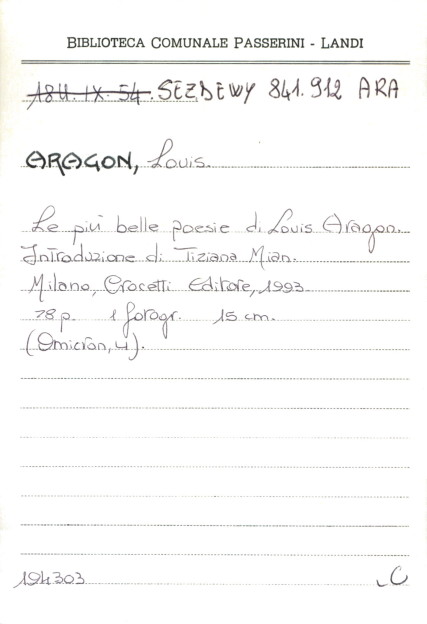 BIBLIOTECA COMUNALE PASSERINI - LANDI
18U. IX. 54. SEZDEWY 841.912 ARA
ARAGON, Louis.
Le più belle poesie di Louis Aragon.
Introduzione di Tiziana Mian.
Milano, Crocetti Editore, 1993.
78 p. 1 fotogr. 15 cm.
(Omicron, 4).
194303 C